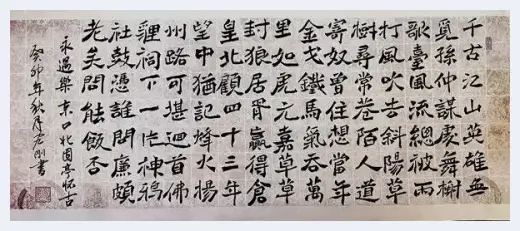 千古江山英雄無
覓孫仲謀處舞榭
歌臺風流總被雨
打風吹去斜陽草
樹尋常巷陌人道
寄奴曾住想當年
金戈鐵馬氣吞萬
里如虎元嘉草草
封狼居胥贏得倉
皇北顧四十三年
望中猶記烽火揚
州路可堪迴首佛
貍祠下一片神鴉
社鼓憑誰問廉頗
老矣尚能飯否
永遇樂京口北固亭懷古
癸卯年秋月剛書